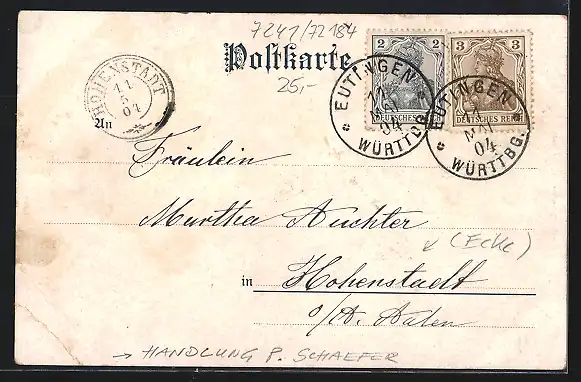 7241/72184
Postkarte
25,-
2 2
DEUTSCHES REICH
3 3
DEUTSCHES REICH
EUTINGEN
11
MAI
04
WÜRTTBG.
EUTINGEN
MAI
04
WÜRTTBG.
HOHENSTADT
11
5
04
An
Fräulein
Martha Auchter
(Ecke)
in Hohenstadt
o/A. Aalen
→ HANDLUNG P. SCHAEFER